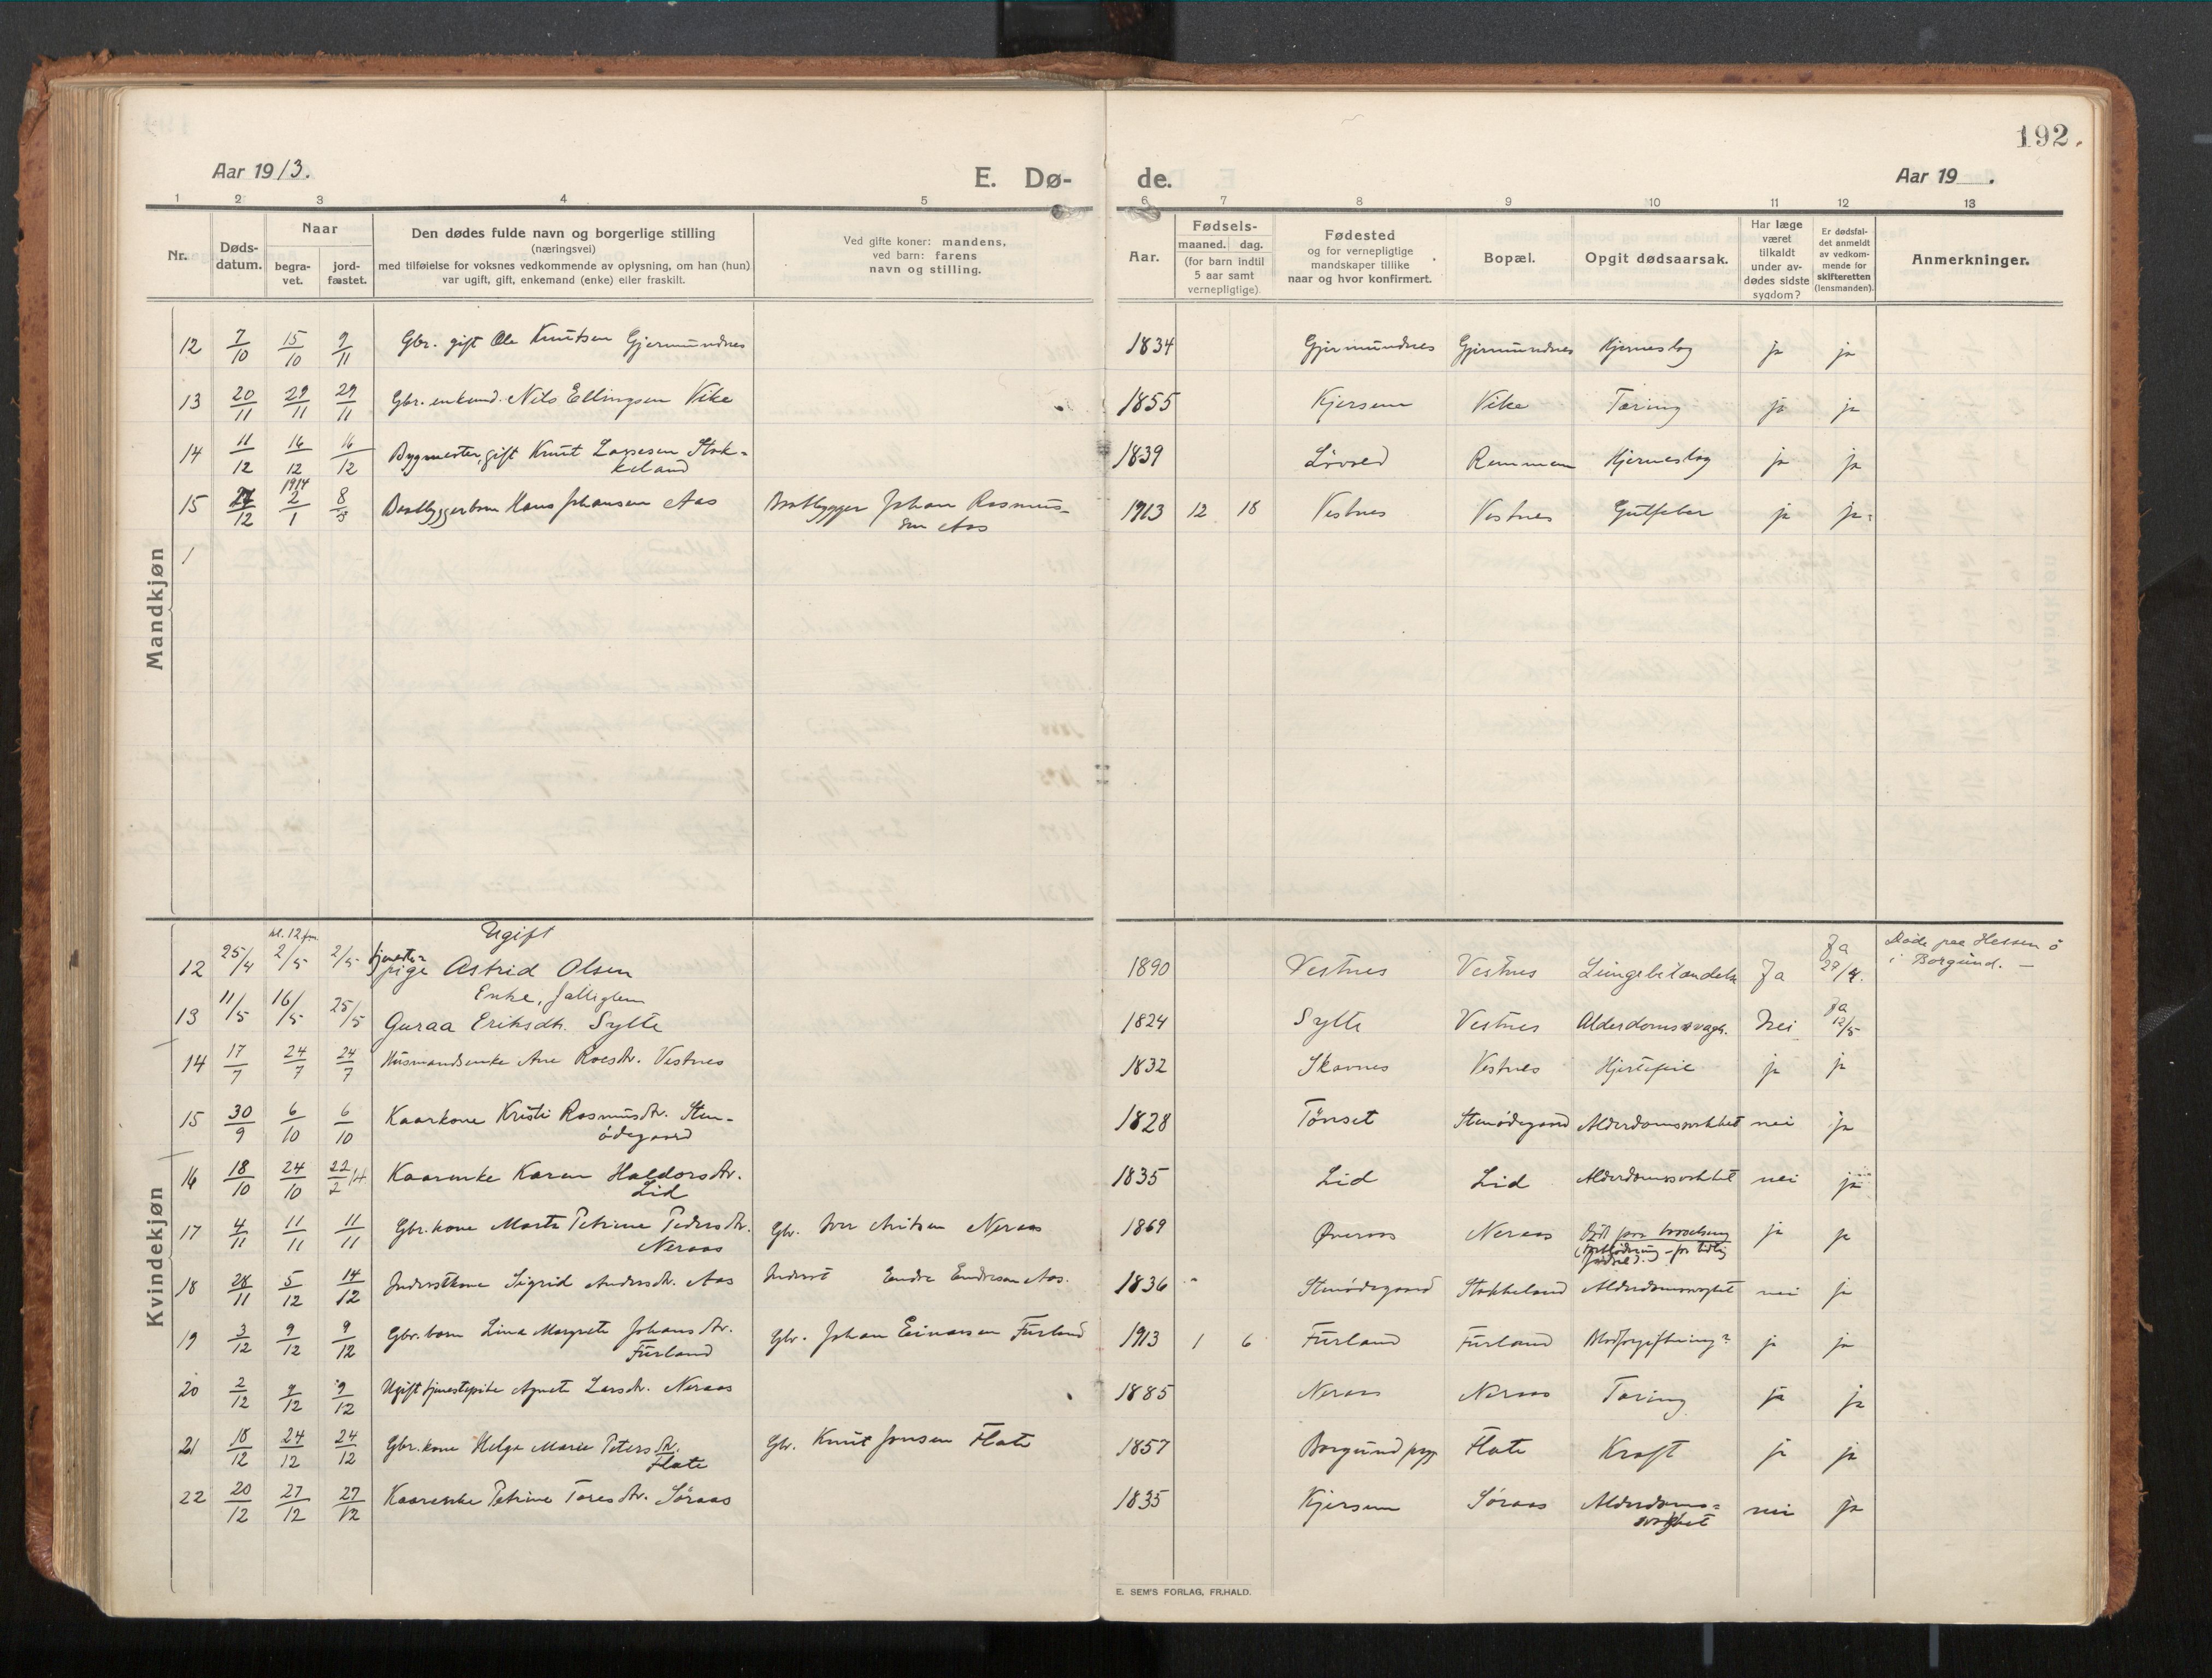 192.
Aar 1913.
E. Dø-
de.
Aar 19 .
1 2 3 4 5 6 7 8 9 10 11 12 13
Nr.
Døds-
datum.
Naar
begra-
vet.
jord-
fæstet.
Den dødes fulde navn og borgerlige stilling
(næringsvei)
med tilføielse for voksnes vedkommende av oplysning, om han (hun)
var ugift, gift, enkemand (enke) eller fraskilt.
Ved gifte koner: mandens,
ved barn: farens
navn og stilling.
Aar.
Fødsels-
maaned. dag.
(for barn indtil
5 aar samt
vernepligtige).
Fødested
og for vernepligtige
mandskaper tillike
naar og hvor konfirmert.
Bopæl.
Opgit dødsaarsak.
Har læge
været
tilkaldt
under av-
dødes sidste
sygdom?
Er dødsfal-
det anmeldt
av vedkom-
mende for
skifteretten
(lensmanden).
Anmerkninger.
Mandkjøn
12 7/10 15/10 9/11 Gbr. gift Ole Knutsen Gjermundnes 1834 Gjermundnes Gjermundnes Hjerneslag ja ja
13 20/11 29/11 29/11 Gbr. enkemd. Nils Ellingsen Vike 1855 Kjersem Vike Tæring ja ja
14 11/12 16/12 16/12 Bygmester, gift Knut Lassesen Stok-
keland 1839 Remmem Hjerneslag ja ja
1914
15 27/12 2/1 8/3 Baatbyggerbarn Hans Johansen Aas Baatbygger Johan Rasmus-
sen Aas 1913 12 18 Vestnes Vestnes Gulfeber ja ja
1
Kvindekjøn
kl. 12 fm. Ugift
12 25/4 2/5 2/5 tjeneste-
pige Astrid Olsen 1890 Vestnes Vestnes Lungebetændelse Ja Ja 27/4. Døde paa Hessen ö
i Borgund. —
Enke, fattiglem
13 11/5 16/5 25/5 Guraa Eriksdtr. Sylte 1824 Sylte Vestnes Alderdomssvagh. Nei Ja 12/5
14 17/7 24/7 24/7 Husmandsenke Ane Roesdtr. Vestnes 1832 Skavnes Vestnes Hjertefeil ja ja
15 30/9 6/10 6/10 Kaarkone Kristi Rasmusdtr. Sten-
ødegaard 1828 Tönset Stenødegaard Alderdomssvakhet nei ja
16 18/10 24/10 22/2 14 Kaarenke Karen Haldorsdtr.
Lid 1835 Lid Lid Alderdomssvakhet nei ja
17 4/11 11/11 11/11 Gbr. kone Marte Petrine Pedersdtr.
Neraas Gbr. Iver Neraas 1869 Øveraas Neraas ja ja
18 28/11 5/12 14/12 Inderstkone Sigrid Andersdtr. Aas Inderst Endre Endresen Aas. 1836 Stenødegaard Stokkeland Alderdomssvaghet nei ja
19 3/12 9/12 9/12 Gbr. barn Lina Margrete Johansdtr.
Furland Gbr. Johan Einarsen Furland 1913 1 6 Furland Furland Blodforgiftning? ja ja
20 2/12 9/12 9/12 Ugift tjenestepike Agnete Larsdtr. Neraas 1885 Neraas Neraas Tæring ja ja
21 18/12 24/12 24/12 Gbr. kone Helga Marie Petersdtr.
Flate Gbr. Knut Jonsen Flate 1857 Borgund pgj. Flate Kræft ja ja
22 20/12 27/12 27/12 Kaarenke Petrine Toresdtr. Söraas 1835 Kjersem Söraas Alderdoms-
svakhet nei ja
E. SEM'S FORLAG, FR.HALD.